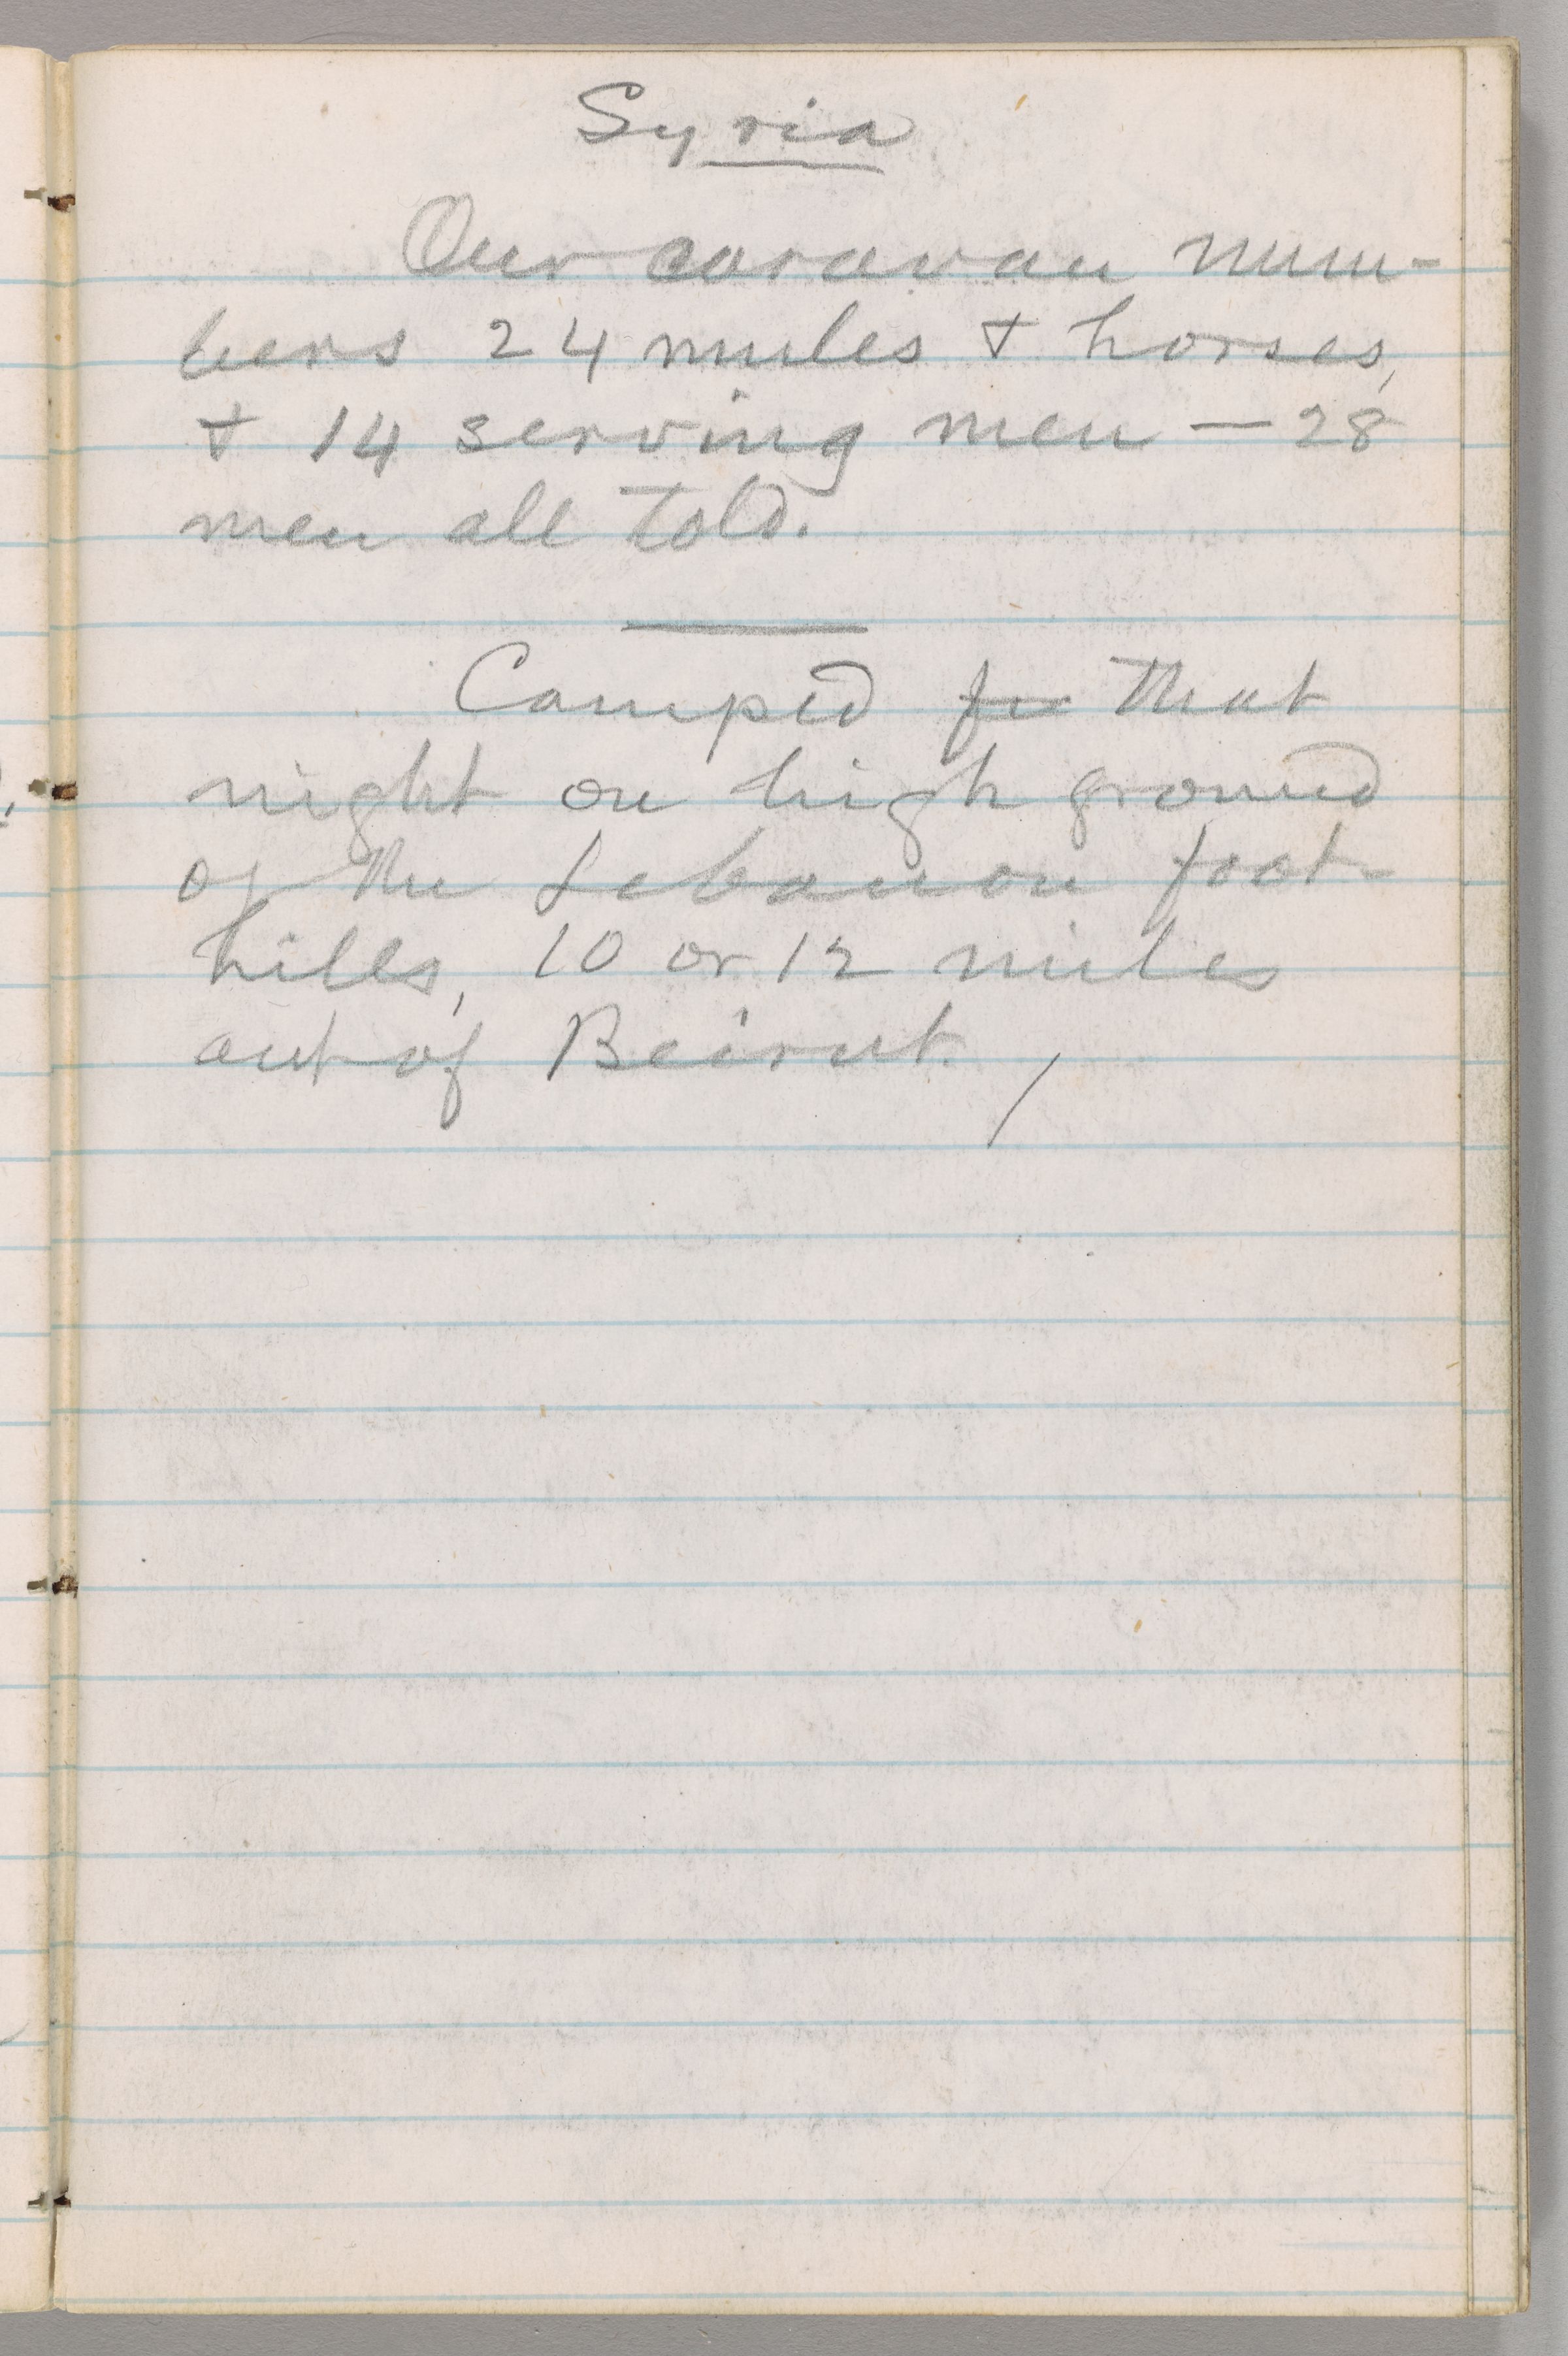 Syria
Our caravan num-
bers 24 mules & horses,
& 14 serving men — 28
men all told.
Camped that
night on high ground
of the Lebanon foot-
hills, 10 or 12 miles
out of Beirut.